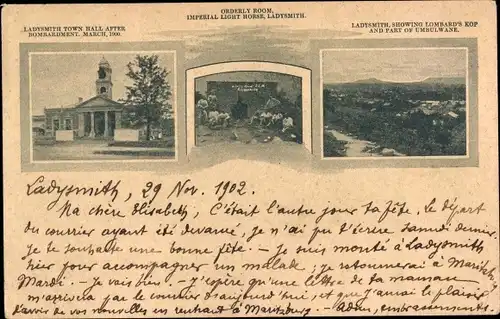 ORDERLY ROOM,
IMPERIAL LIGHT HORSE, LADYSMITH.
LADYSMITH TOWN HALL AFTER
BOMBARDMENT. MARCH, 1900.
LADYSMITH, SHOWING LOMBARD'S KOP
AND PART OF UMBULWANE.
Ladysmith, 29 Nov. 1902.
Ma chère Elisabeth, C'était l'autre jour ta fête, le départ
du courrier ayant été devancé, je n'ai pu t'écrire Samedi dernier.
Je te souhaite une bonne fête. - Je suis monté à Ladysmith
hier pour accompagner un malade, je retournerai à Maritzburg
Mardi. - Je vais bien. - J'espère qu'une lettre de ta maman
m'arrivera par le courrier d'aujourd'hui et que j'aurai le plaisir
d'avoir de vos nouvelles en rentrant à Maritzburg. - Adieu, embrassements